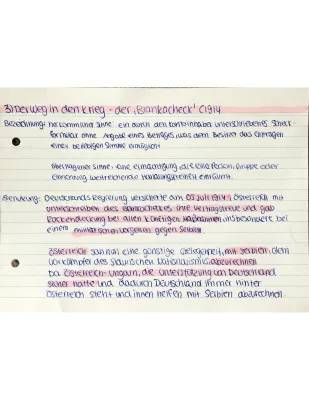 3) Der Weg in den Krieg - der "Blankocheck" (1914
Bezeichnung: herkömmlicher Sinne: ein durch den Kontoinhaber unterschriebenes Scheck-
formular ohne Angabe eines Betrages, was dem Besitzer das Eintragen
einer beliebigen Summe ermöglicht
übertragener Sinne: eine Ermächtigung, die eine Person, Gruppe oder
Einrichtung weitreichende Handlungsfreiheit einräumt.
Bedeutung: Deutschlands Regierung versicherte am 05. Juli 1914 Österreich mit
unterschreiben des Blankoschecks ihre Vertragstreue und gab
Rückendeckung bei allen künftigen Maßnahmen, insbesondere bei
einem militärischen Vorgehen gegen Serbien
Österreich sah nun eine günstige Gelegenheit, mit Serbien, dem
Vorkämpfer des slawischen Nationalismus abzurechnen
Da Österreich-Ungarn, die Unterstützung von Deutschland
sicher hatte und dadurch Deutschland immer hinter
Österreich steht und ihnen helfen mit Serbien abzurechnen.